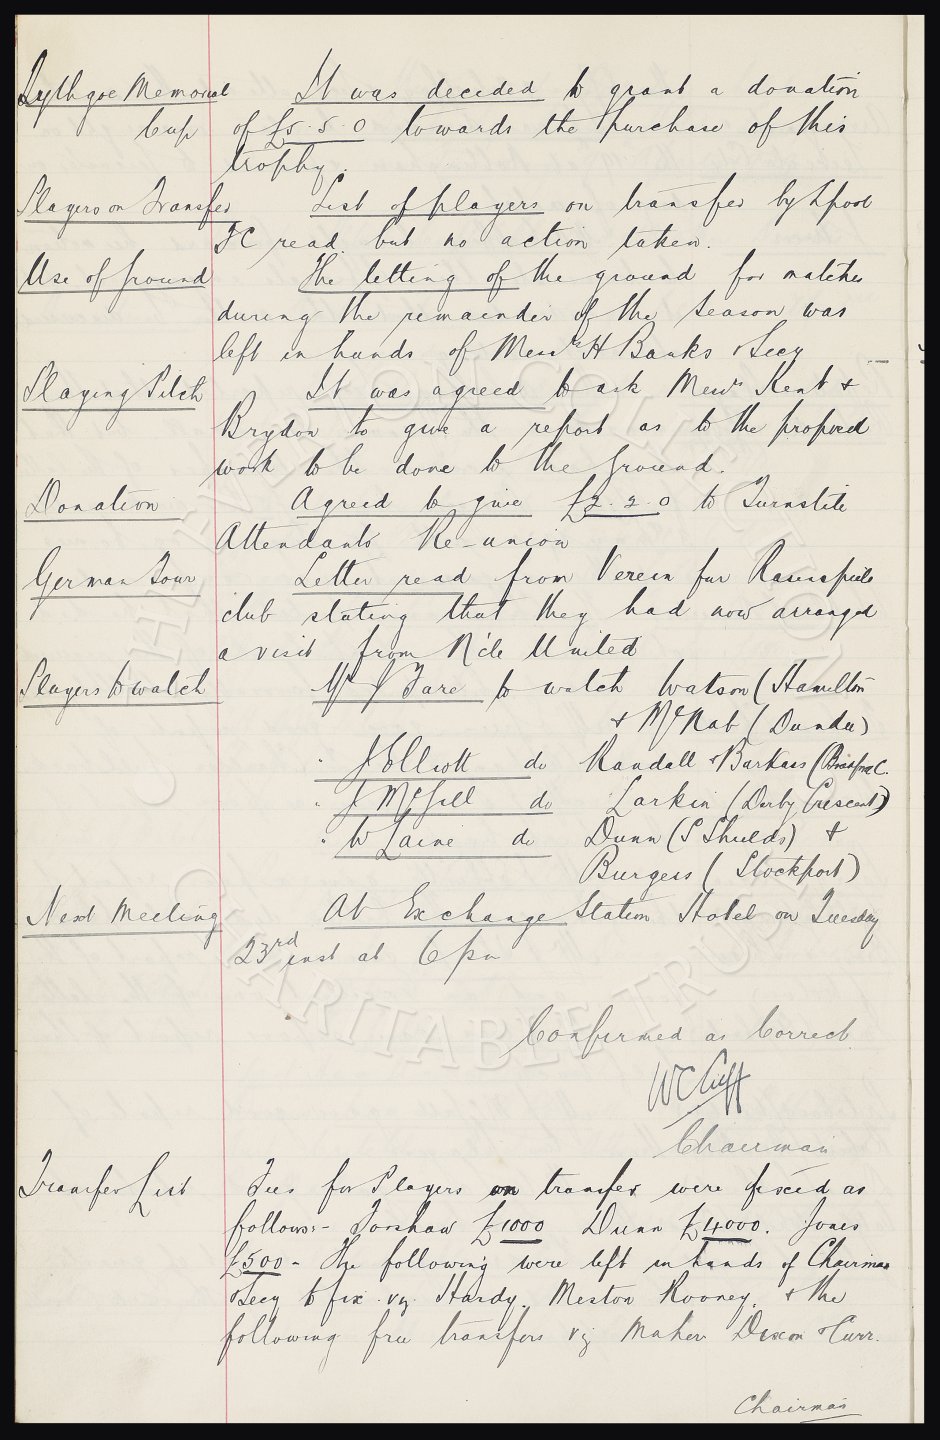 Lythgoe Memorial It was decided to grant a donation
Cup of £5.5.0 towards the purchase of this
trophy.
Players on Transfer List of players on transfer by Lpool
FC read but no action taken.
Use of Ground The letting of the ground for matches
during the remainder of the season was
left in hands of Messrs H Banks & Secy
Playing Pitch It was agreed to ask Messrs Kent &
Brydon to give a report as to the proposed
work to be done to the ground.
Donation Agreed to give £2.2.0 to Turnstile
Attendants Re-union
German Tour Letter read from Verein fur Rasenspiele
club stating that they had now arranged
a visit from N'cle United
Players to watch Mr J Fare to watch Watson (Hamilton
& McNab (Dundee)
" J Elliott do Randall & Barkass (Bradford C.
" J McGill do Larkin (Derby Crescent)
" W Laine do Dunn (S Shields) &
Burgess (Stockport)
Next Meeting At Exchange Station Hotel on Tuesday
23rd inst at 6 pm
Confirmed as Correct
WC Cuff
Chairman
Transfer List Fees for Players on transfer were fixed as
follows:- Forshaw £1000 Dunn £4000. Jones
£500 - The following were left in hands of Chairman
& Secy to fix viz. Hardy, Meston Rooney, & the
following free transfers viz Maher Dixon & Curr.
Chairman
C HAVE ON COLLECTION
CHARITABLE TRUST